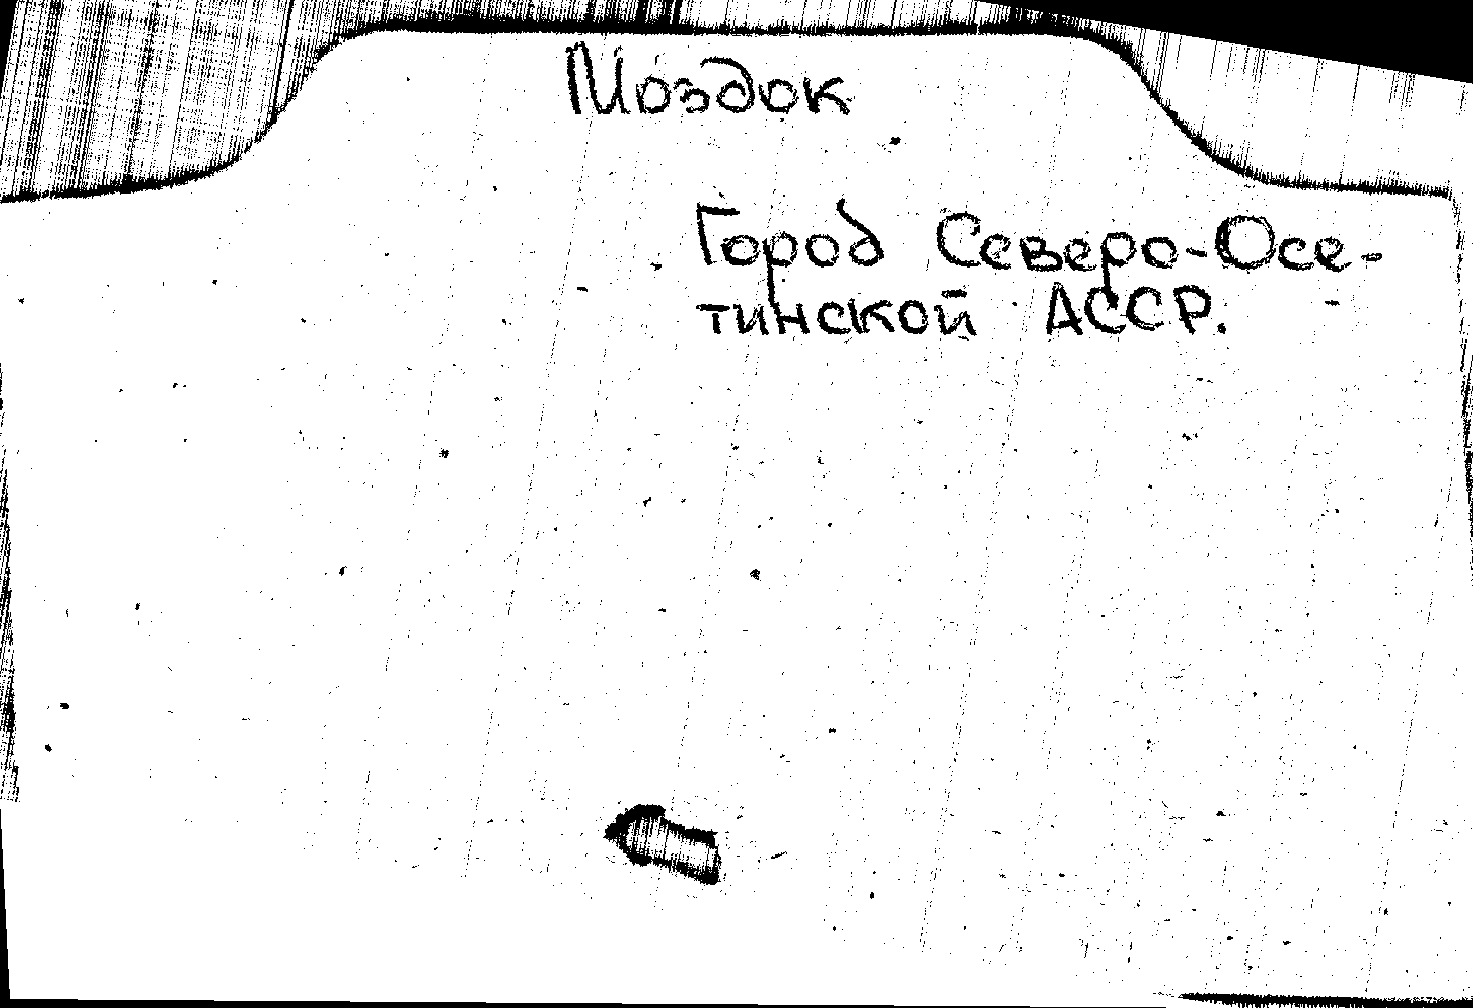 Моздок
Город Северо-Осе-
тинской АССР.